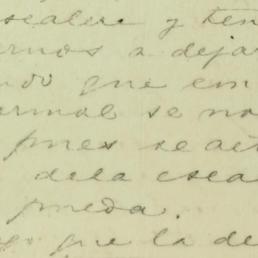 escalera y ten
ernos a dejar
ndo que em
ermal se no
pues se ac
dela esca
pueda.
go que la de